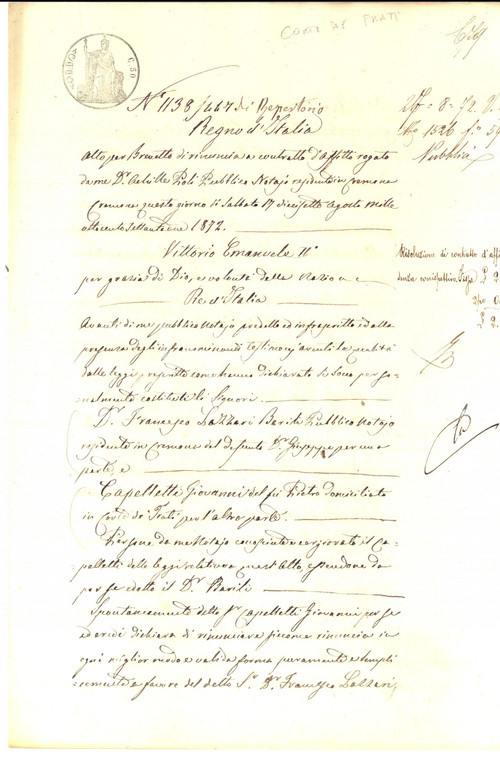 CORTE DE' FRATI
C. 50
N° 1138/447 di Repertorio
Regno d'Italia
Atto per Brevetto di rinuncia a contratto d'affitto rogato
da me Dr. Achille Pubblico Notajo residente in Cremona
Cremona questo giorno di Sabbato 17 diciasette Agosto mille
ottocento settantadue 1872.
Vittorio Emanuele II°
per grazia di Dio, e volontà della Nazione
Re d'Italia
Avanti di me pubblico Notajo predetto ed infrascritto ed alla
presenza degli infranominati testimonj aventi le qualità
dalle leggi, come hanno dichiarato si sono per so-
nalmente costituiti li Signori.
Dr. Francesco Lazzari Barili Pubblico Notajo
residente in Cremona del defunto Dr. Giuseppe per una
parte, e
Capelletti Giovanni del fu Pietro domiciliato
in Corte de' Frati per l'altra parte.
Persone da me Notajo conosciute e cerziorato il Ca-
pelletti delle leggi relative a quest'Atto, essendone da
per se edotto il Dr. Barili
Spontaneamente detto Sr. Capelletti Giovanni per se
ed eredi dichiara di rinunciare siccome rinuncia in
ogni miglior modo e valida forma puramente e sempli
cemente a favore del detto Sr. Dr. Francesco Lazzari,
Risoluzione di contratto d'affitto
senza corrispettivo